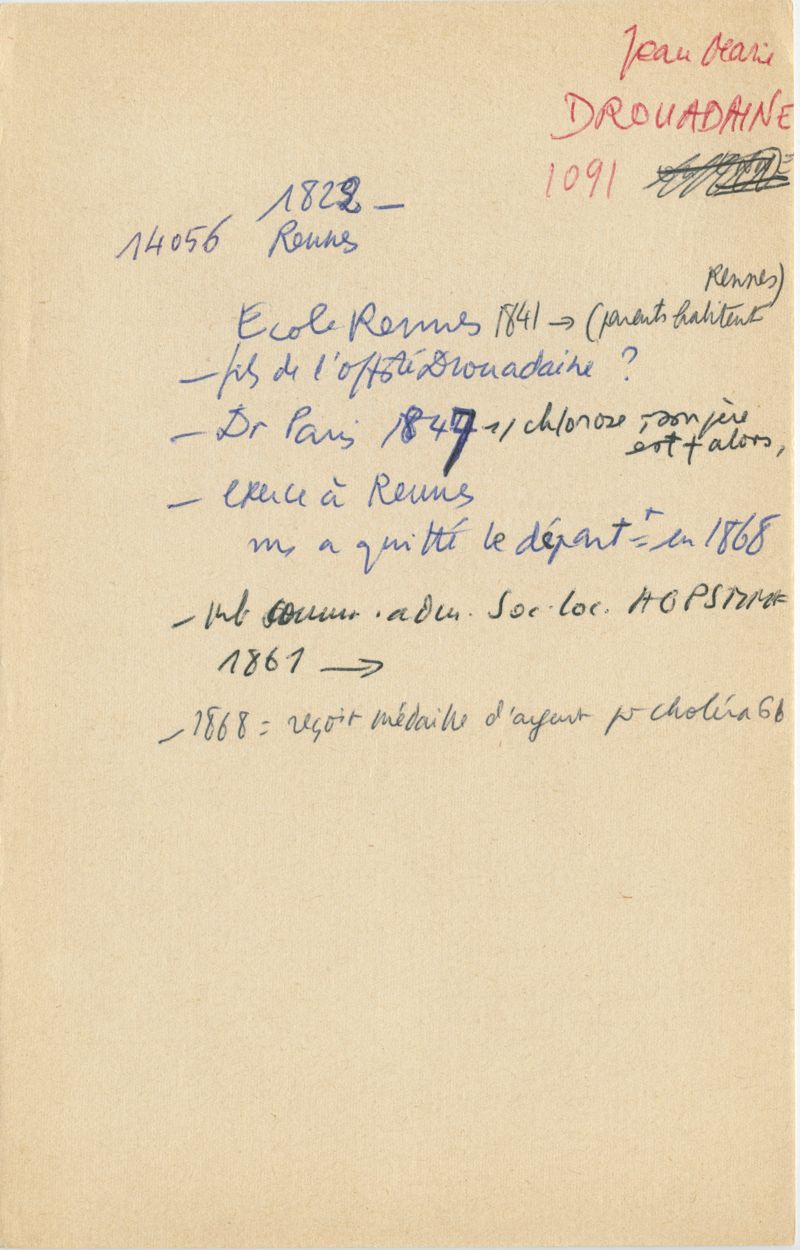 Jean Marie
DROUADAINE
1091
1822 –
14056 Rennes
Ecole Rennes 1841 → (parents habitent Rennes)
– fils de l'off Drouadaine ?
– Dr Paris 1847 s/ chlorose, son père
est + alors,
– exerce à Rennes
ms a quitté le départt = en 1868
– mb comm. adm. Soc. loc.
1861 →
– 1868 = reçoit médaille d'argent pr choléra 66